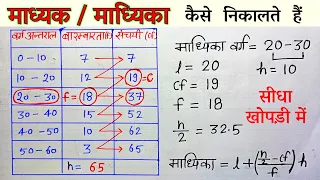 माध्यक / माध्यिका कैसे निकालते हैं
वर्ग अन्तराल बारम्बारता(f) संचयी (cf)
0-10 7 → 7
10-20 12 → 19 = C
20-30 f= 18 → 37
30-40 15 → 52
40-50 10 → 62
50-60 3 → 65
h = 65
माध्यिका वर्ग = 20-30
l = 20 h = 10
cf = 19
f = 18
h/2 = 32.5
माध्यिका = l + (h/2 - cf / f) h
सीधा
खोपड़ी में